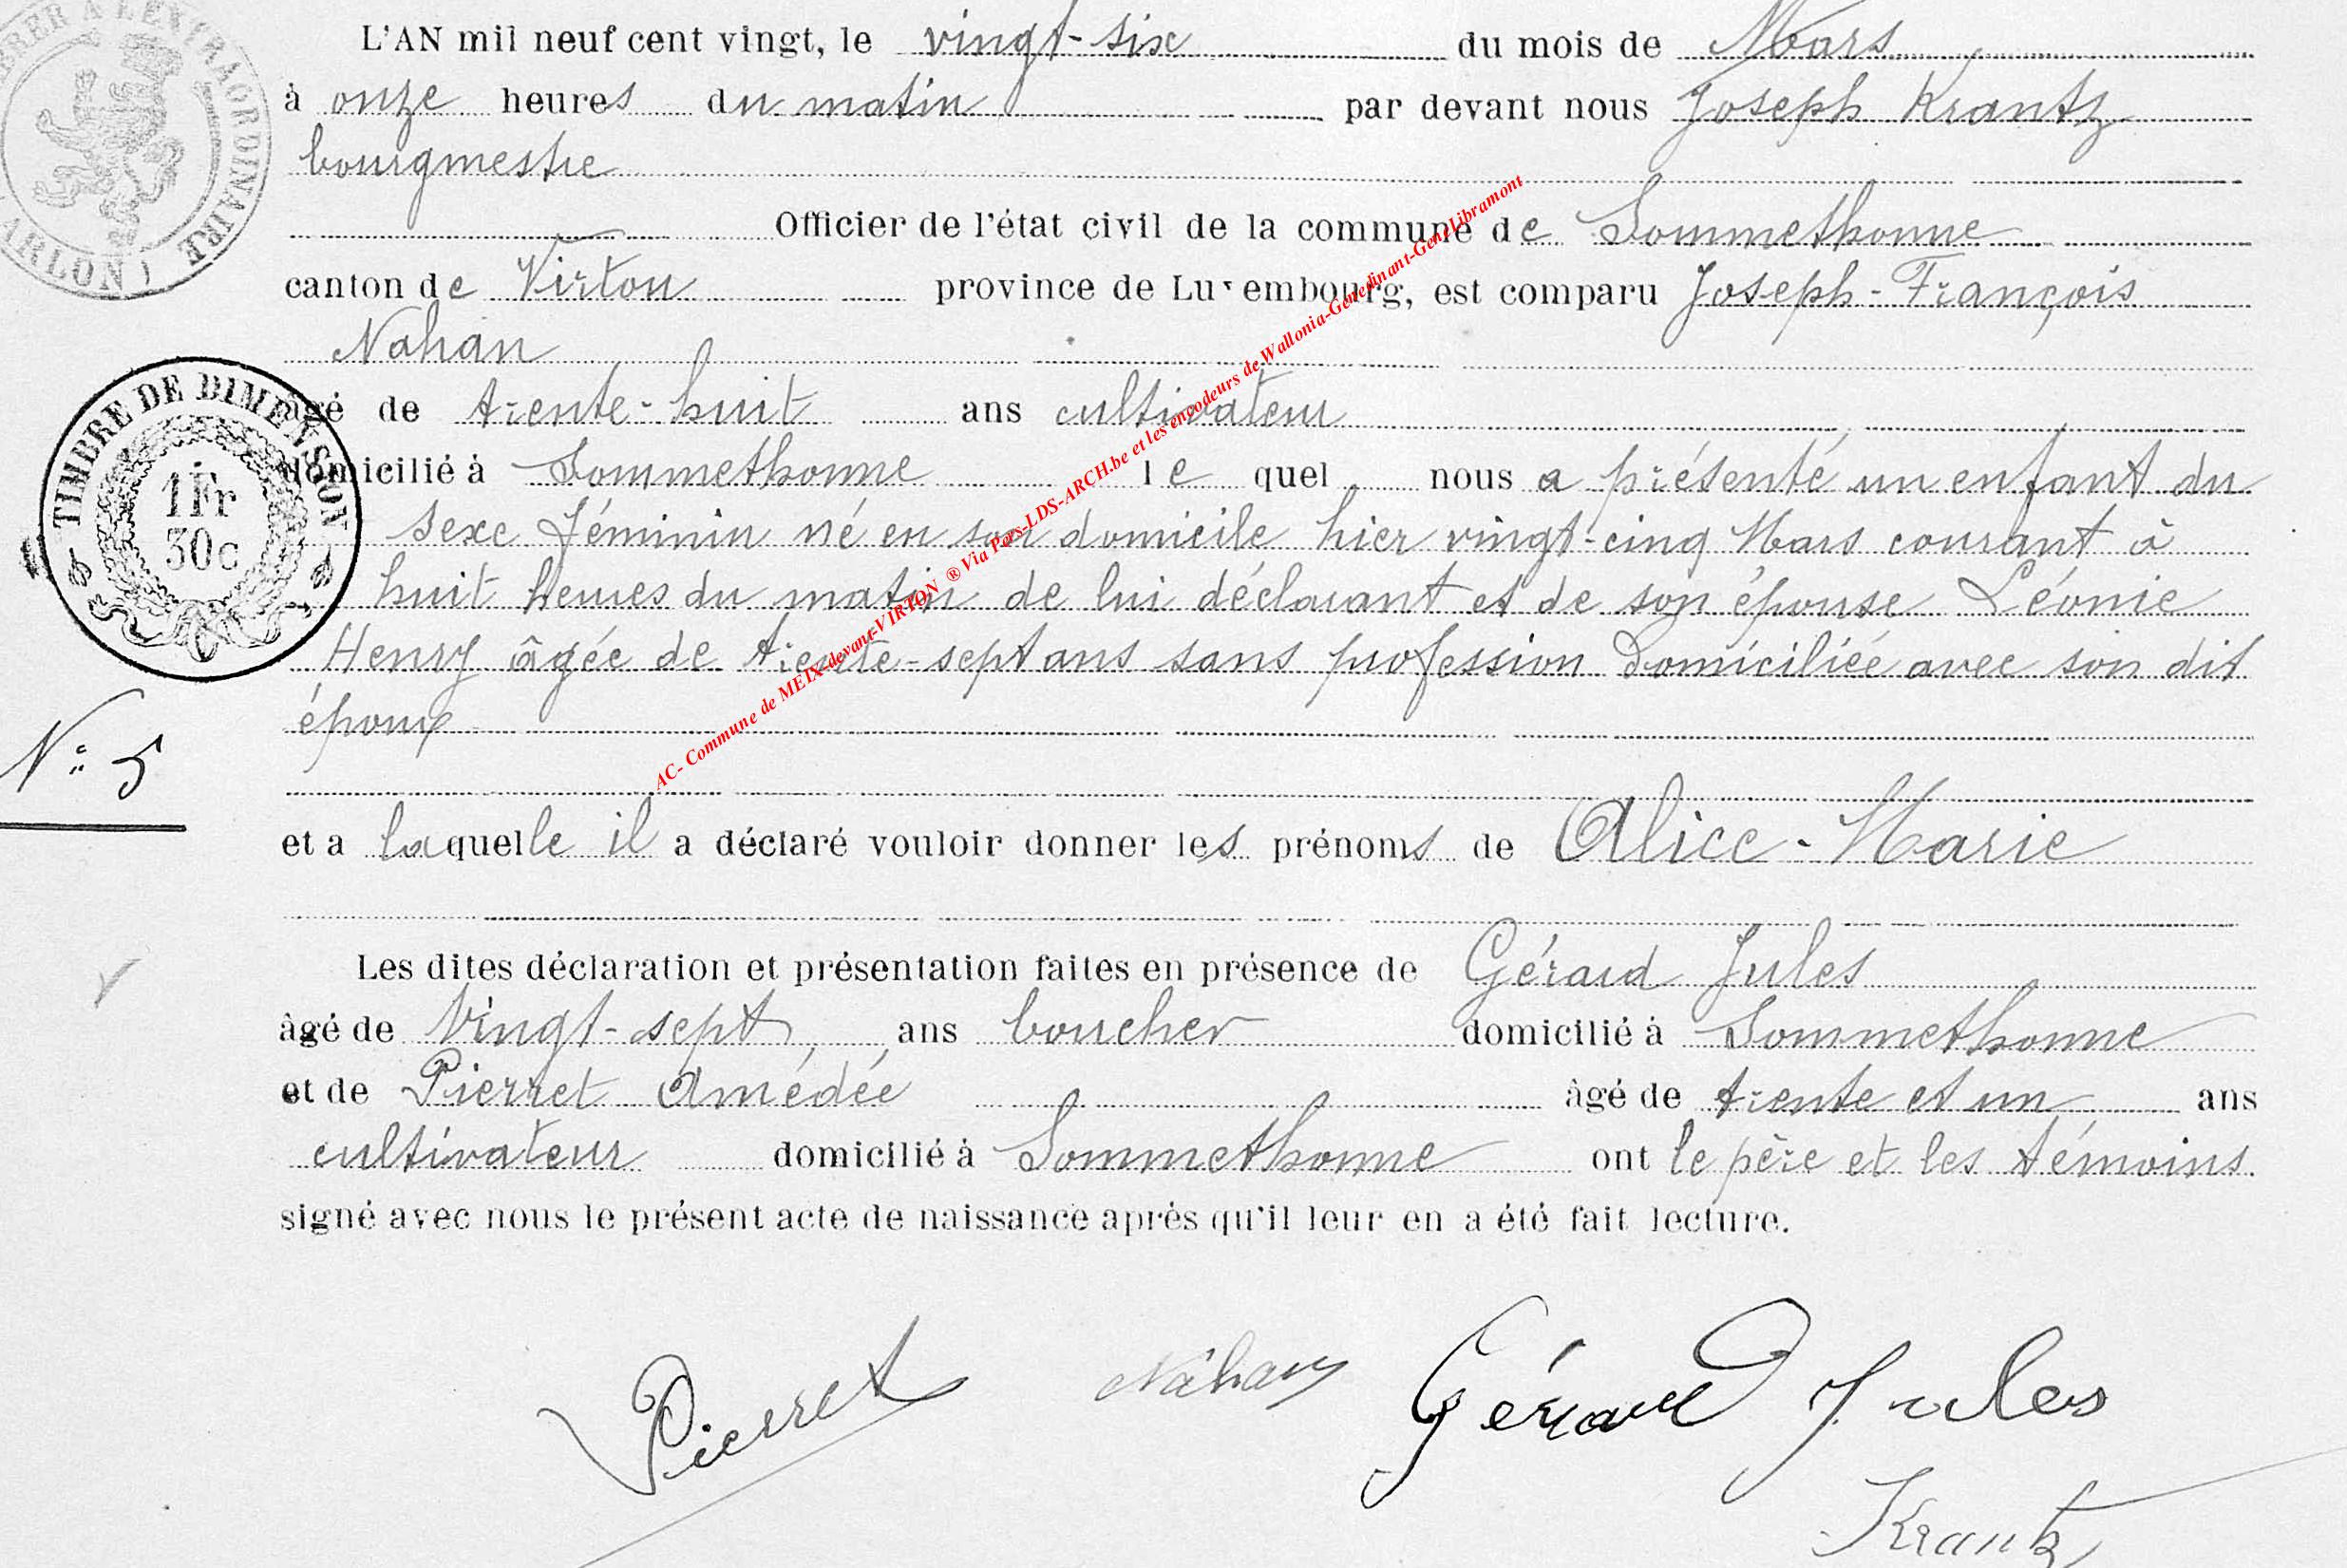 L'AN mil neuf cent vingt, le vingt-six du mois de Mars
à onze heures du matin par devant nous Joseph Krantz
bourgmestre
Officier de l'état civil de la commune de Sommethonne
canton de Virton province de Luxembourg, est comparu Joseph-François
Nahan
âgé de trente-huit ans cultivateur
domicilié à Sommethonne lequel nous a présenté un enfant du
sexe féminin né en son domicile hier vingt-cinq Mars courant à
huit heures du matin de lui déclarant et de son épouse Léonie
Henry âgée de trente-sept ans sans profession domiciliée avec son dit
époux
et a laquelle il a déclaré vouloir donner les prénoms de Alice-Marie
Les dites déclaration et présentation faites en présence de Gérard Jules
âgé de vingt-sept ans boucher domicilié à Sommethonne
et de Pierret Amédée âgé de trente et un ans
cultivateur domicilié à Sommethonne ont le père et les témoins
signé avec nous le présent acte de naissance après qu'il leur en a été fait lecture.
Pierret Nahan Gérard Jules
Krantz
N° 5
TIMBRE DE DIMENSION
1Fr
30c
A L'EXTRAORDINAIRE
(ARLON)
AC- Commune de MEIX-devant-VIRTON ® Via Pers-LDS-ARCH.be et les encodeurs de Wallonia-Genedinant-GeneLibramont